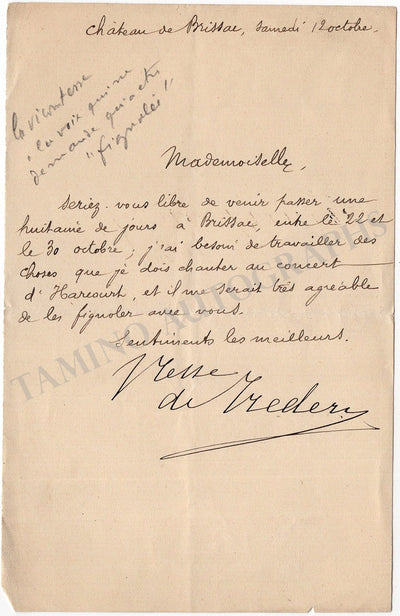 Château de Brissac, samedi 12 octobre.
la vicomtesse
"la voix qui ne
demande qu'à être
"fignolée"!
Mademoiselle,
Seriez-vous libre de venir passer une
huitaine de jours à Brissac, entre le 22 et
le 30 octobre; j'ai besoin de travailler des
choses que je dois chanter au concert
d'Harcourt, et il me serait très agréable
de les fignoler avec vous.
Sentiments les meilleurs.
Vtesse
de Trédern
TAMINO AUTOGRAPHS